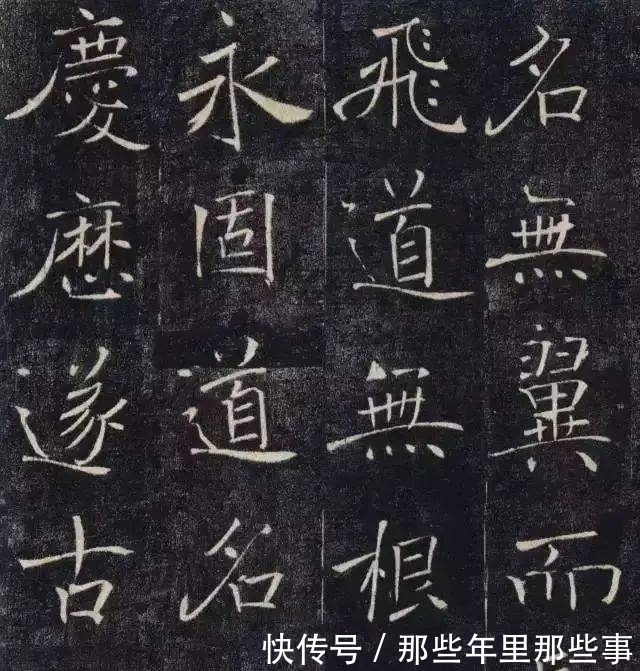 名無翼而
飛道無根
永固道名
慶歷遂古
快传号 / 那些年里那些事